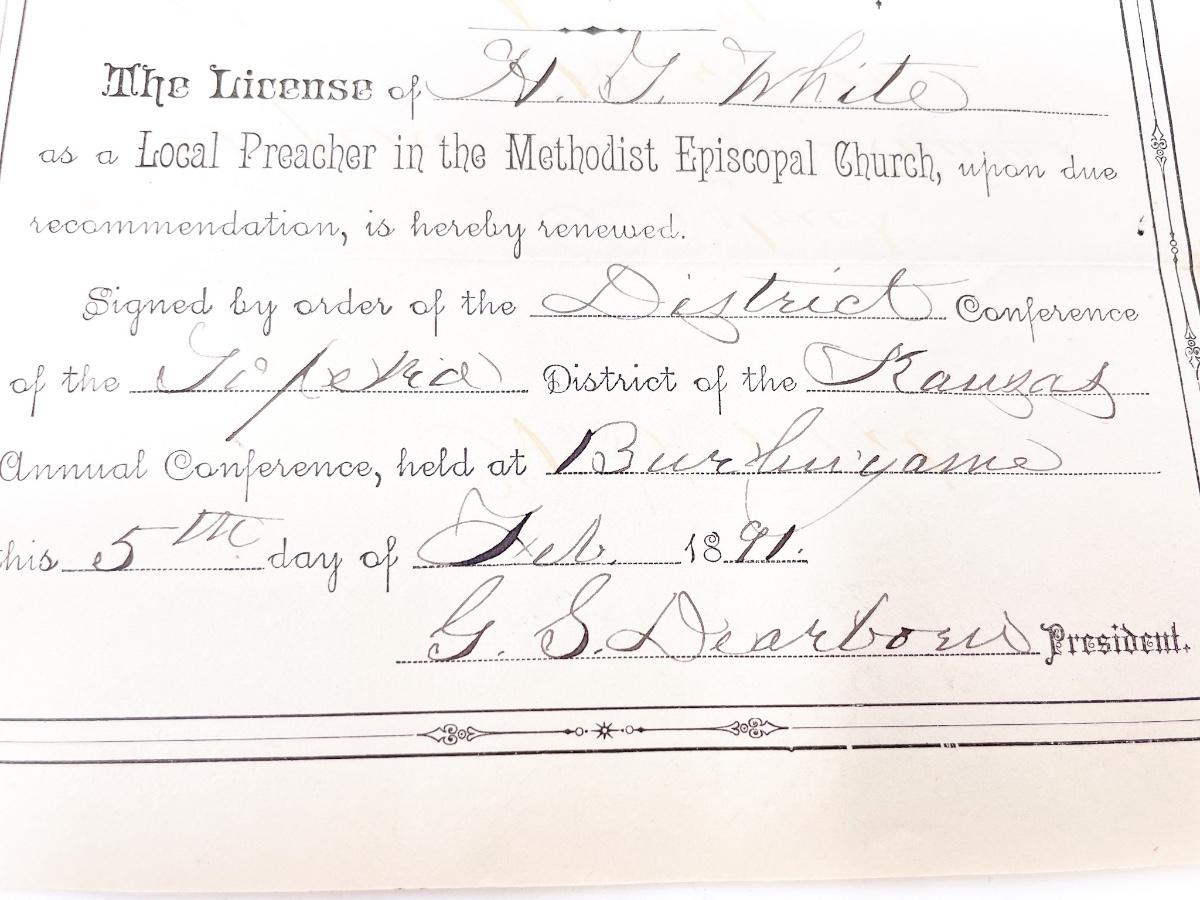 The License of H. G. White
as a Local Preacher in the Methodist Episcopal Church, upon due
recommendation, is hereby renewed.
Signed by order of the District Conference
of the Topeka District of the Kansas
Annual Conference, held at Burlingame
this 5th day of Feb. 1891.
G. S. Dearborn President.